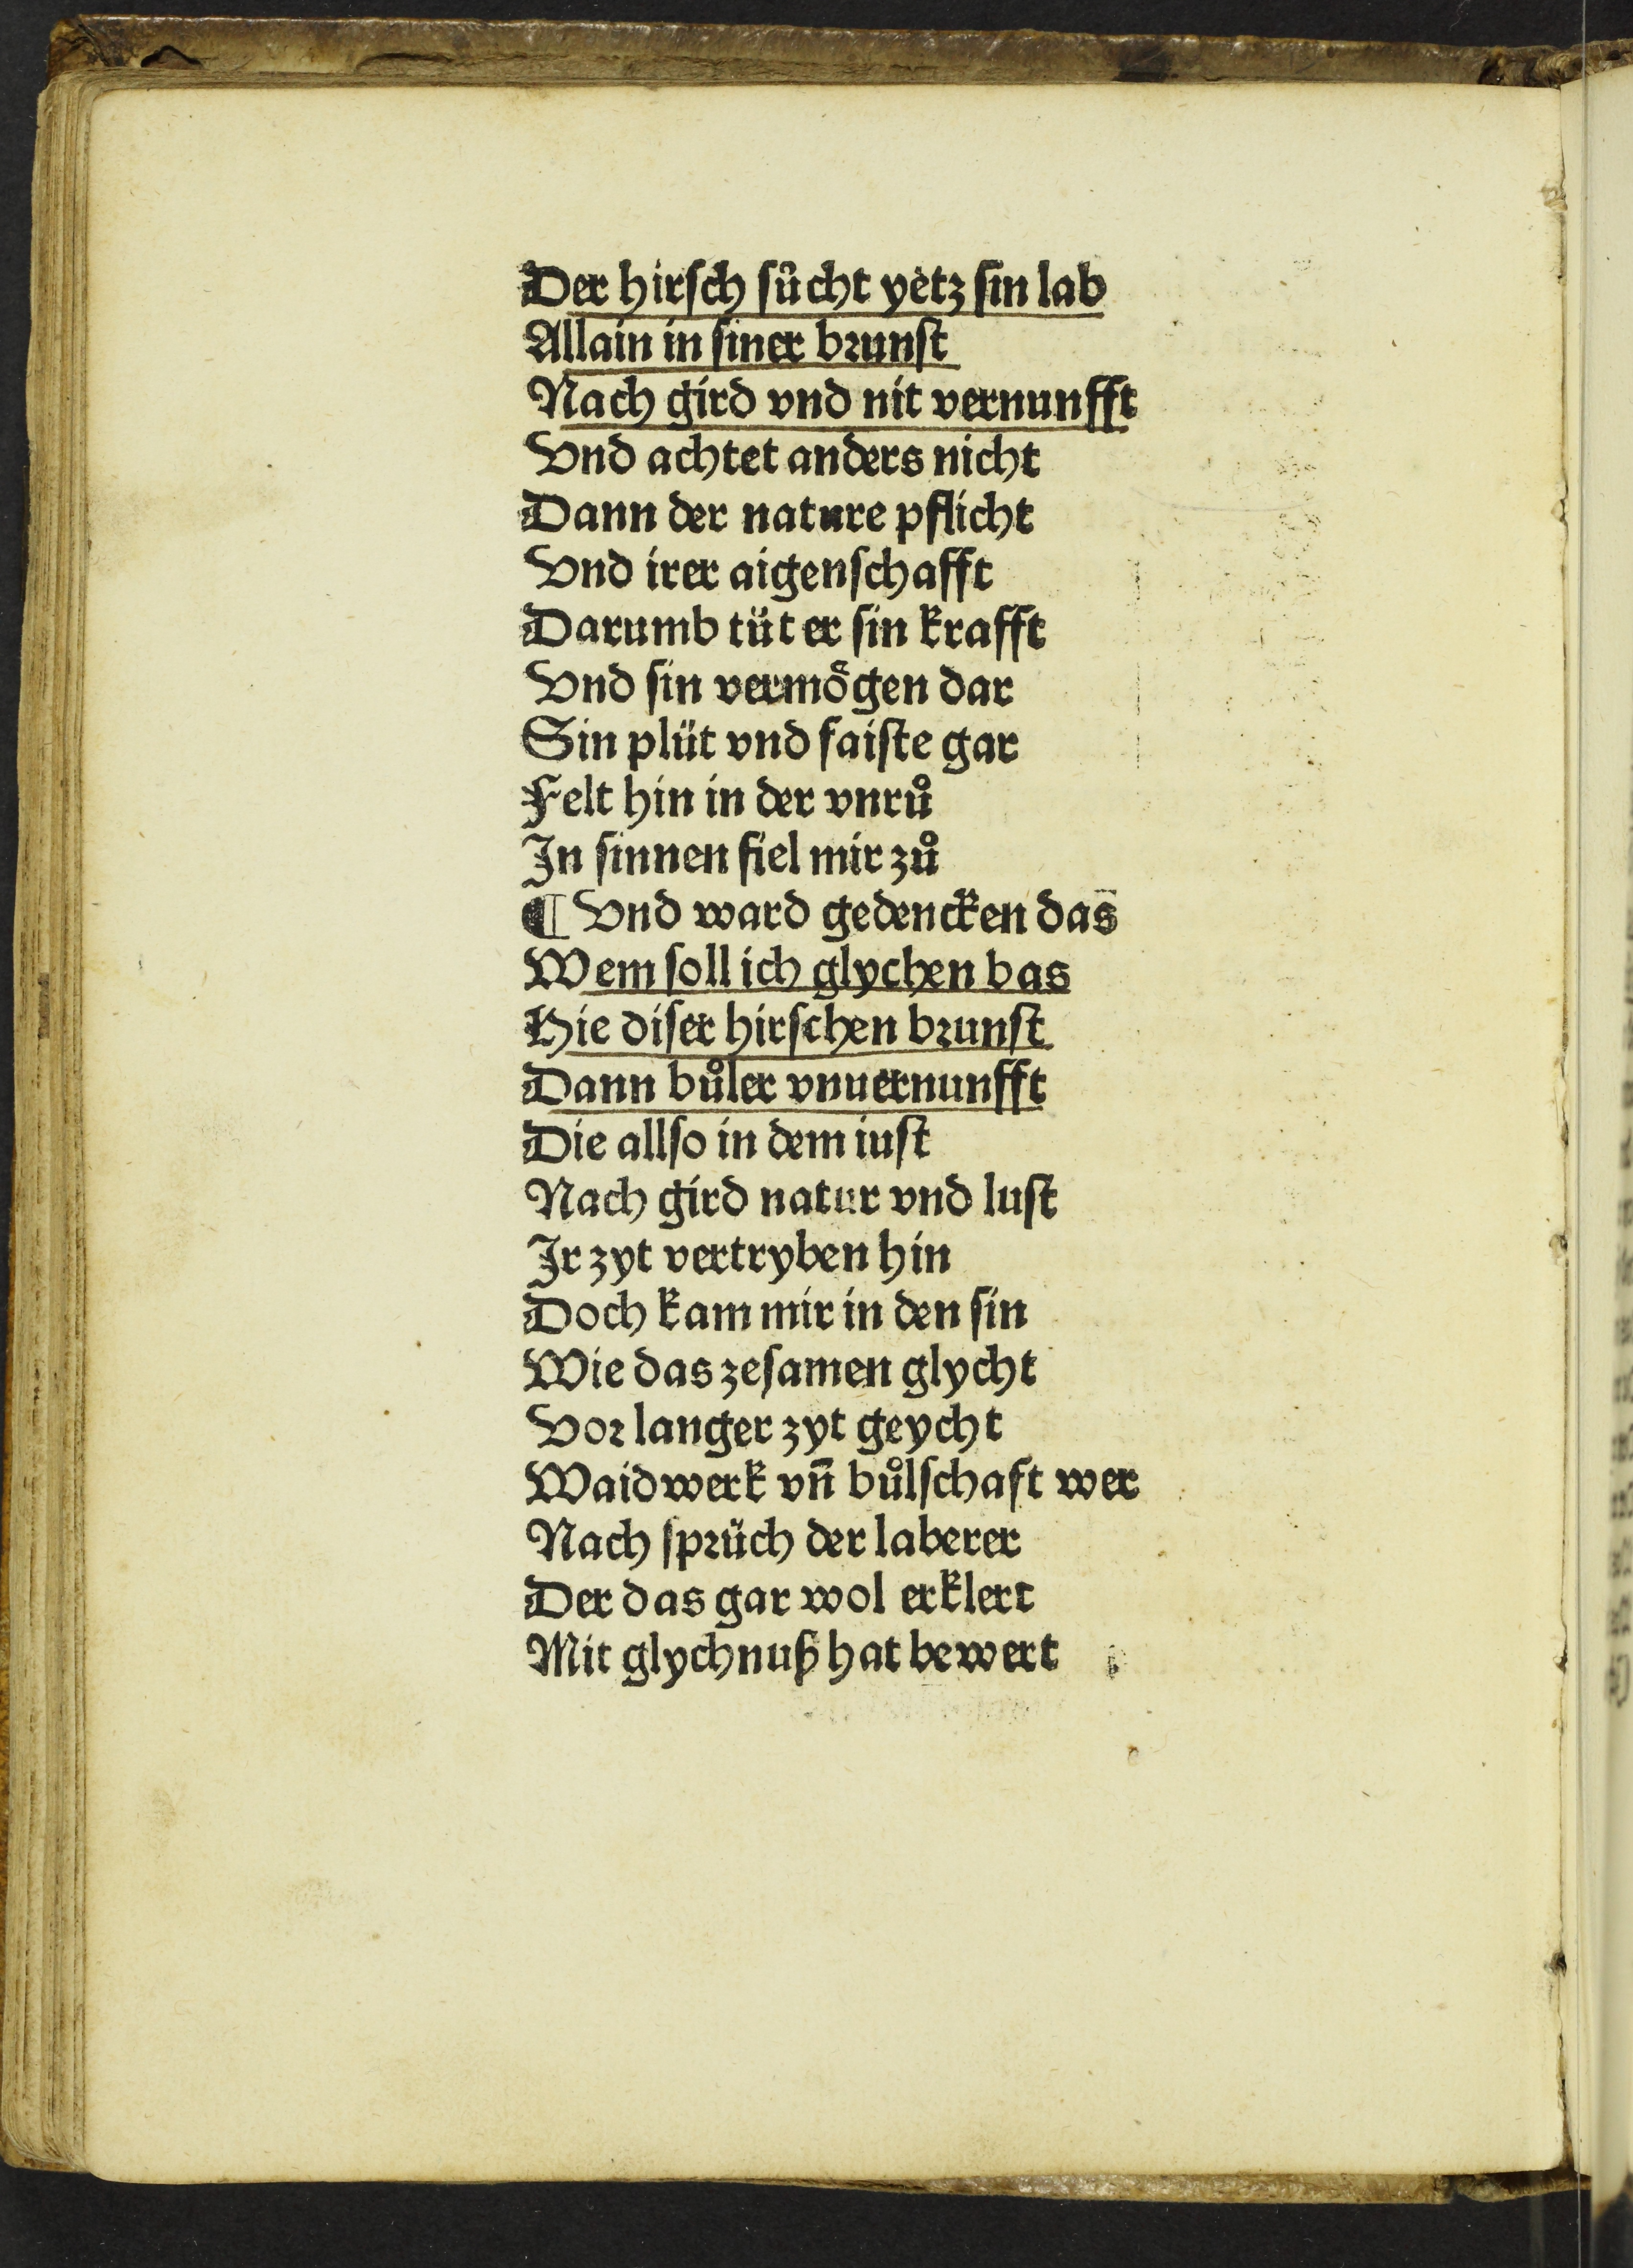 Der hirſch ſůcht yetz ſin lab
Allain in ſiner brunſt
Nach gird vnd nit vernunfft
Vnd achtet anders nicht
Dann der nature pflicht
Vnd irer aigenſchafft
Darumb tüt er ſin krafft
Vnd ſin vermoͤgen dar
Sin plüt vnd faiſte gar
Felt hin in der vnrů
In ſinnen fiel mir zů
¶ Vnd ward gedencken das
Wem ſoll ich glychen bas
Hie diſer hirſchen brunſt
Dann bůler vnuernunfft
Die allſo in dem iuſt
Nach gird natur vnd luſt
Ir zyt vertryben hin
Doch kam mir in den ſin
Wie das zeſamen glycht
Vor langer zyt geycht
Waidwerk vn̄ bůlſchaft wer
Nach ſprüch der laberer
Der das gar wol erklert
Mit glychnuß hat bewert